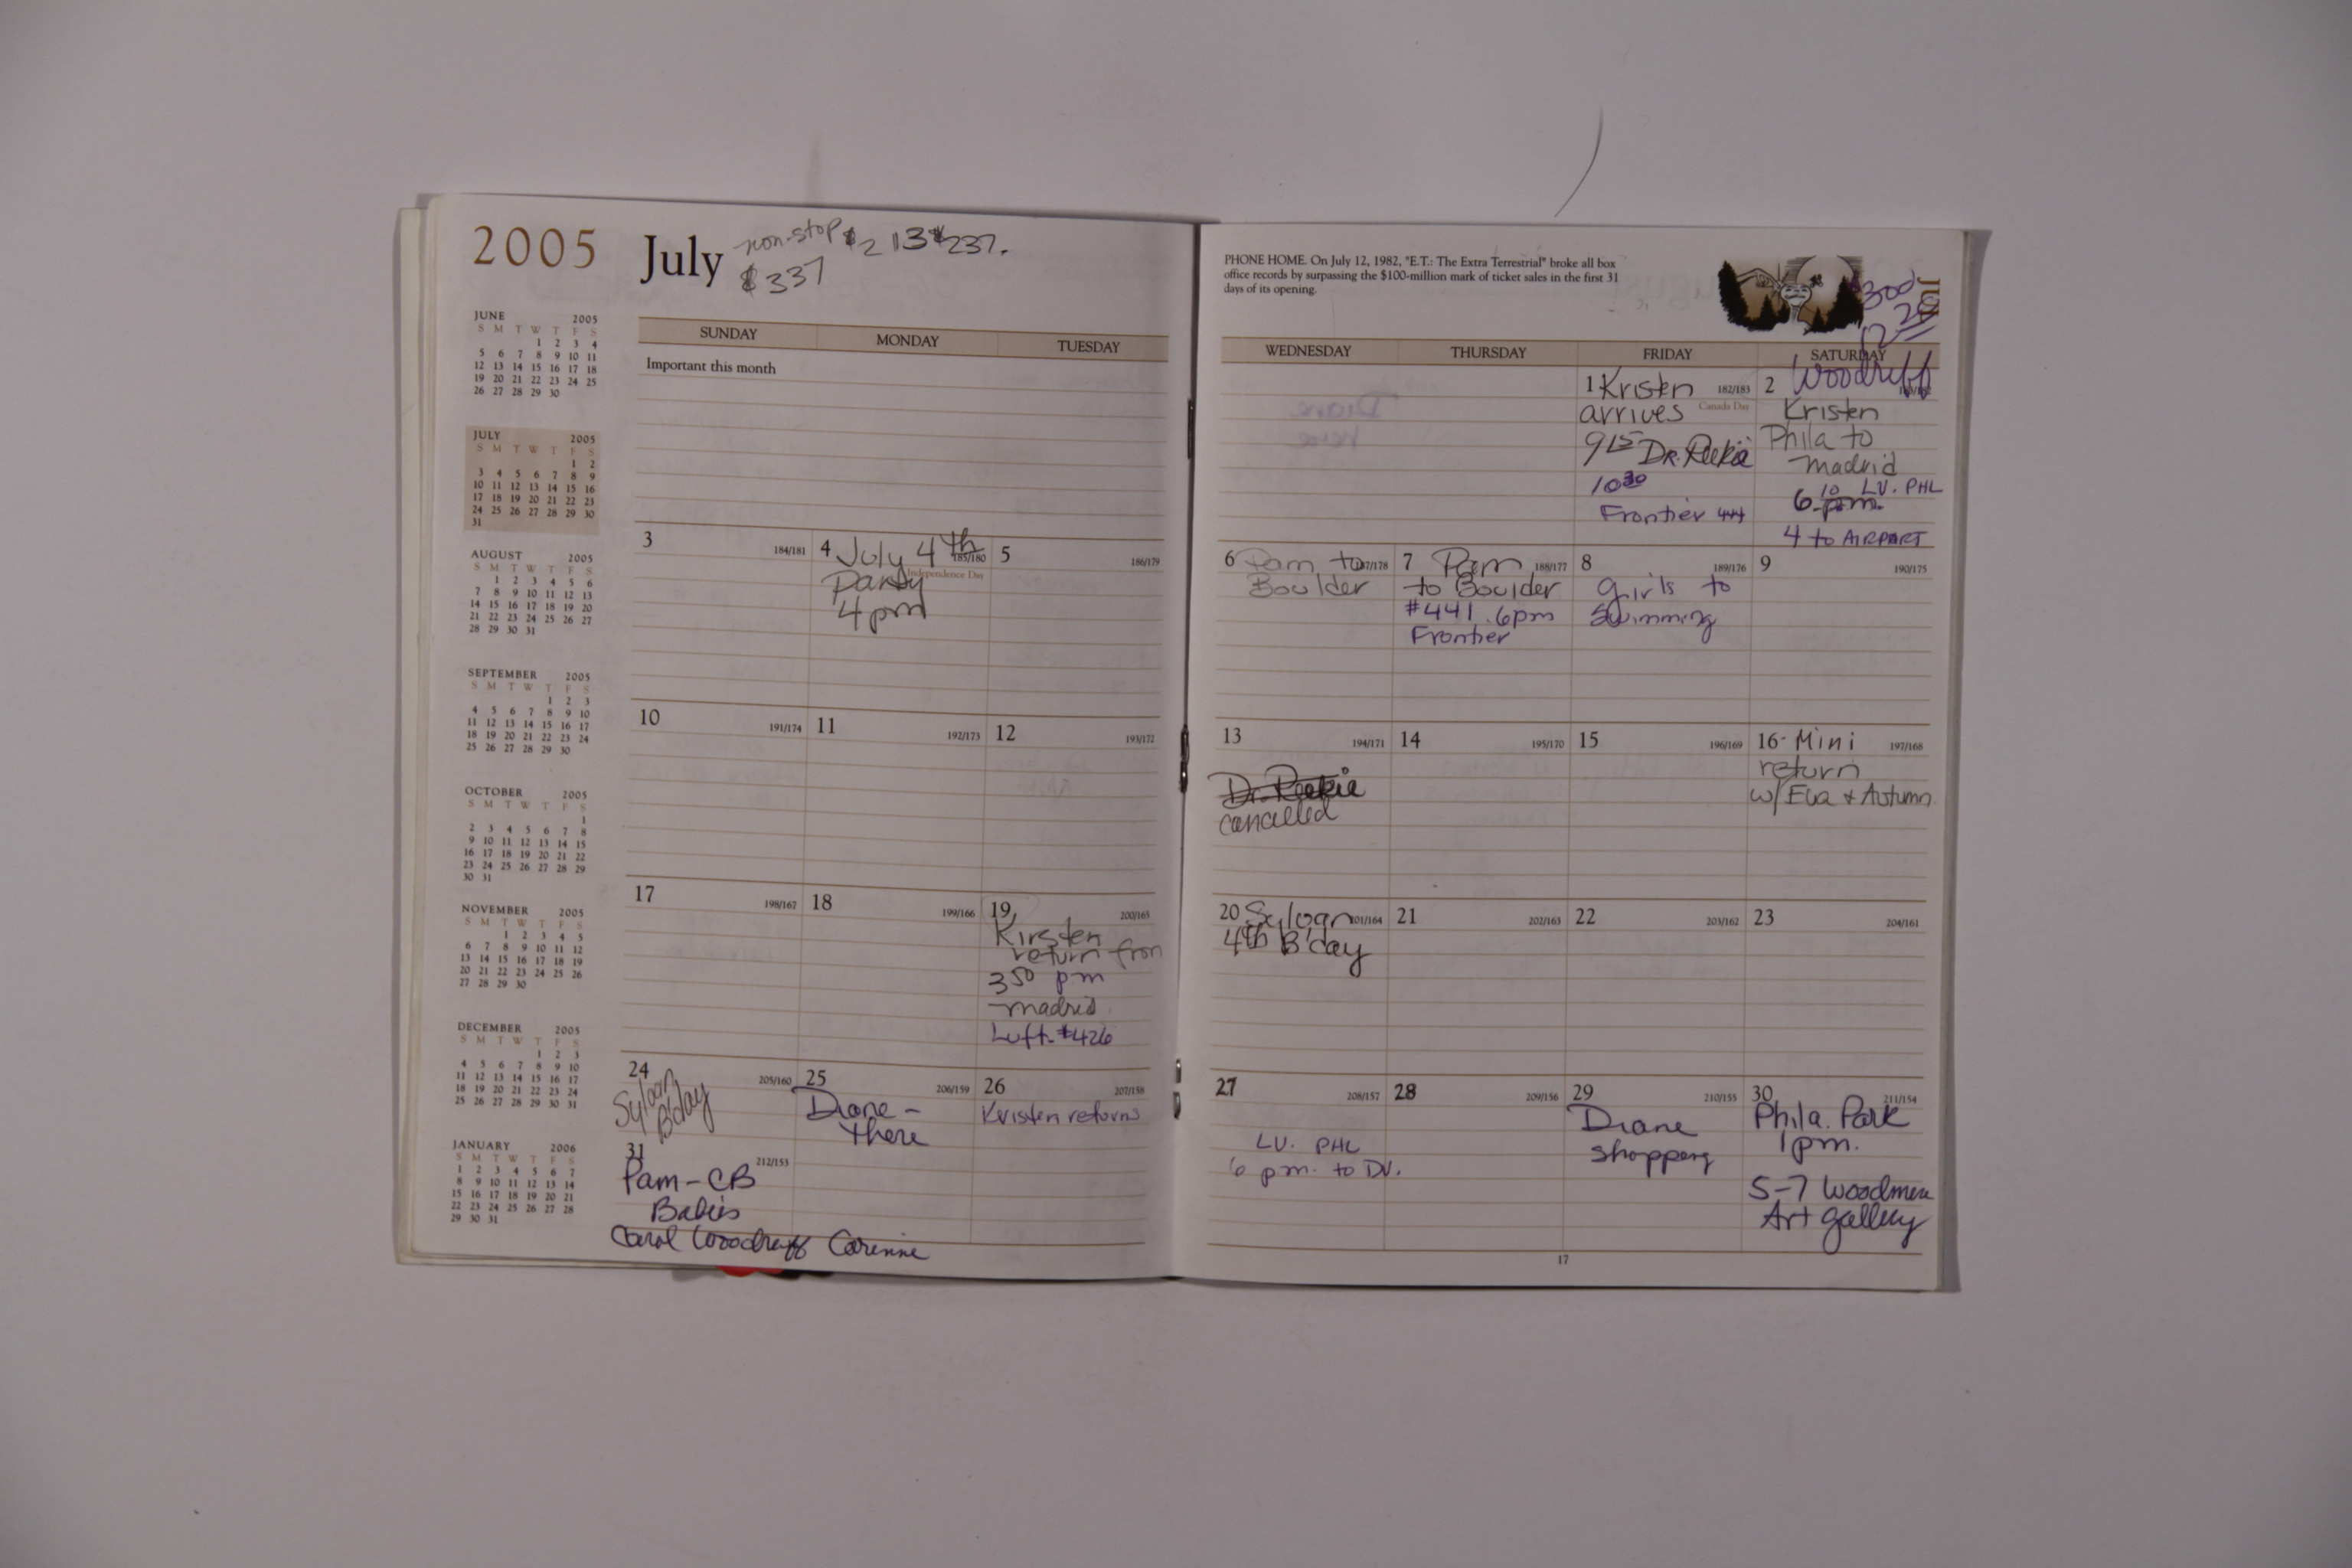 2005
July
non-stop $213 $237.
$337
JUNE 2005
S M T W T F S
1 2 3 4
5 6 7 8 9 10 11
12 13 14 15 16 17 18
19 20 21 22 23 24 25
26 27 28 29 30
JULY 2005
S M T W T F S
1 2
3 4 5 6 7 8 9
10 11 12 13 14 15 16
17 18 19 20 21 22 23
24 25 26 27 28 29 30
31
AUGUST 2005
S M T W T F S
1 2 3 4 5 6
7 8 9 10 11 12 13
14 15 16 17 18 19 20
21 22 23 24 25 26 27
28 29 30 31
SEPTEMBER 2005
S M T W T F S
1 2 3
4 5 6 7 8 9 10
11 12 13 14 15 16 17
18 19 20 21 22 23 24
25 26 27 28 29 30
OCTOBER 2005
S M T W T F S
1
2 3 4 5 6 7 8
9 10 11 12 13 14 15
16 17 18 19 20 21 22
23 24 25 26 27 28 29
30 31
NOVEMBER 2005
S M T W T F S
1 2 3 4 5
6 7 8 9 10 11 12
13 14 15 16 17 18 19
20 21 22 23 24 25 26
27 28 29 30
DECEMBER 2005
S M T W T F S
1 2 3
4 5 6 7 8 9 10
11 12 13 14 15 16 17
18 19 20 21 22 23 24
25 26 27 28 29 30 31
JANUARY 2006
S M T W T F S
1 2 3 4 5 6 7
8 9 10 11 12 13 14
15 16 17 18 19 20 21
22 23 24 25 26 27 28
29 30 31
SUNDAY MONDAY TUESDAY
Important this month
3 184/181
4 July 4th 185/180
Independence Day
Party
4 pm
5 186/179
10 191/174
11 192/173
12 193/172
17 198/167
18 199/166
19 200/165
Kirsten
return from
350 pm
madrid
Luft. #426
24 205/160
Sylvan
B'day
31 212/153
Pam-CB
Babies
Carol Woodruff Corinne
25 206/159
Diane -
there
26 207/158
Kristen returns
PHONE HOME. On July 12, 1982, "E.T.: The Extra Terrestrial" broke all box
office records by surpassing the $100-million mark of ticket sales in the first 31
days of its opening.
JUL
$300
WEDNESDAY THURSDAY FRIDAY SATURDAY
1 Kristen 182/183
Canada Day
arrives
915 Dr. Reekie
1030
Frontier 444
2 Woodruff
Kristen
Phila to
madrid
10 LV. PHL
6 pm.
4 to AIRPORT
6 Pam to 187/178
Boulder
7 Pam 188/177
to Boulder
#441 6pm
Frontier
8 189/176
girls to
swimming
9 190/175
13 194/171
Dr. Reekie
cancelled
14 195/170
15 196/169
16- Mini 197/168
return
w/ Eva + Autumn
20 Sylvan 201/164
4th B'day
21 202/163
22 203/162
23 204/161
27 208/157
LV. PHL
6 p.m. to DV.
28 209/156
29 210/155
Diane
shopping
30 211/154
Phila. Park
1pm.
5-7 Woodmere
Art gallery
17